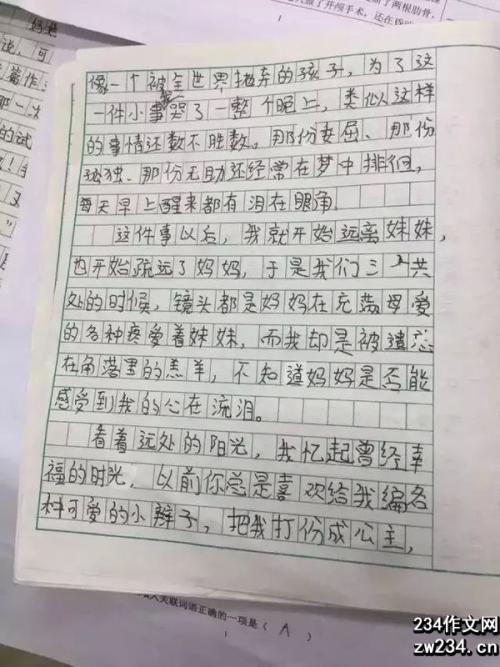 妈妈
像一个被全世界抛弃的孩子，为了这
一件小事哭了一整个晚上，类似这样
的事情还数不胜数。那份委屈、那份
孤独、那份无助还经常在梦中徘徊，
每天早上醒来都有泪在眼角。
这件事以后，我就开始远离妹妹，
也开始疏远了妈妈，于是我们三人共
处的时候，镜头都是妈妈在充满母爱
的各种疼爱着妹妹，而我却是被遗忘
在角落里的羔羊，不知道妈妈是否能
感受到我的心在流泪。
看着远处的阳光，我忆起曾经幸
福的时光，以前你总是喜欢给我编各
种可爱的小辫子，把我打份成公主，
关联词语正确的一项是（ A ）
234作文网
zw234.com